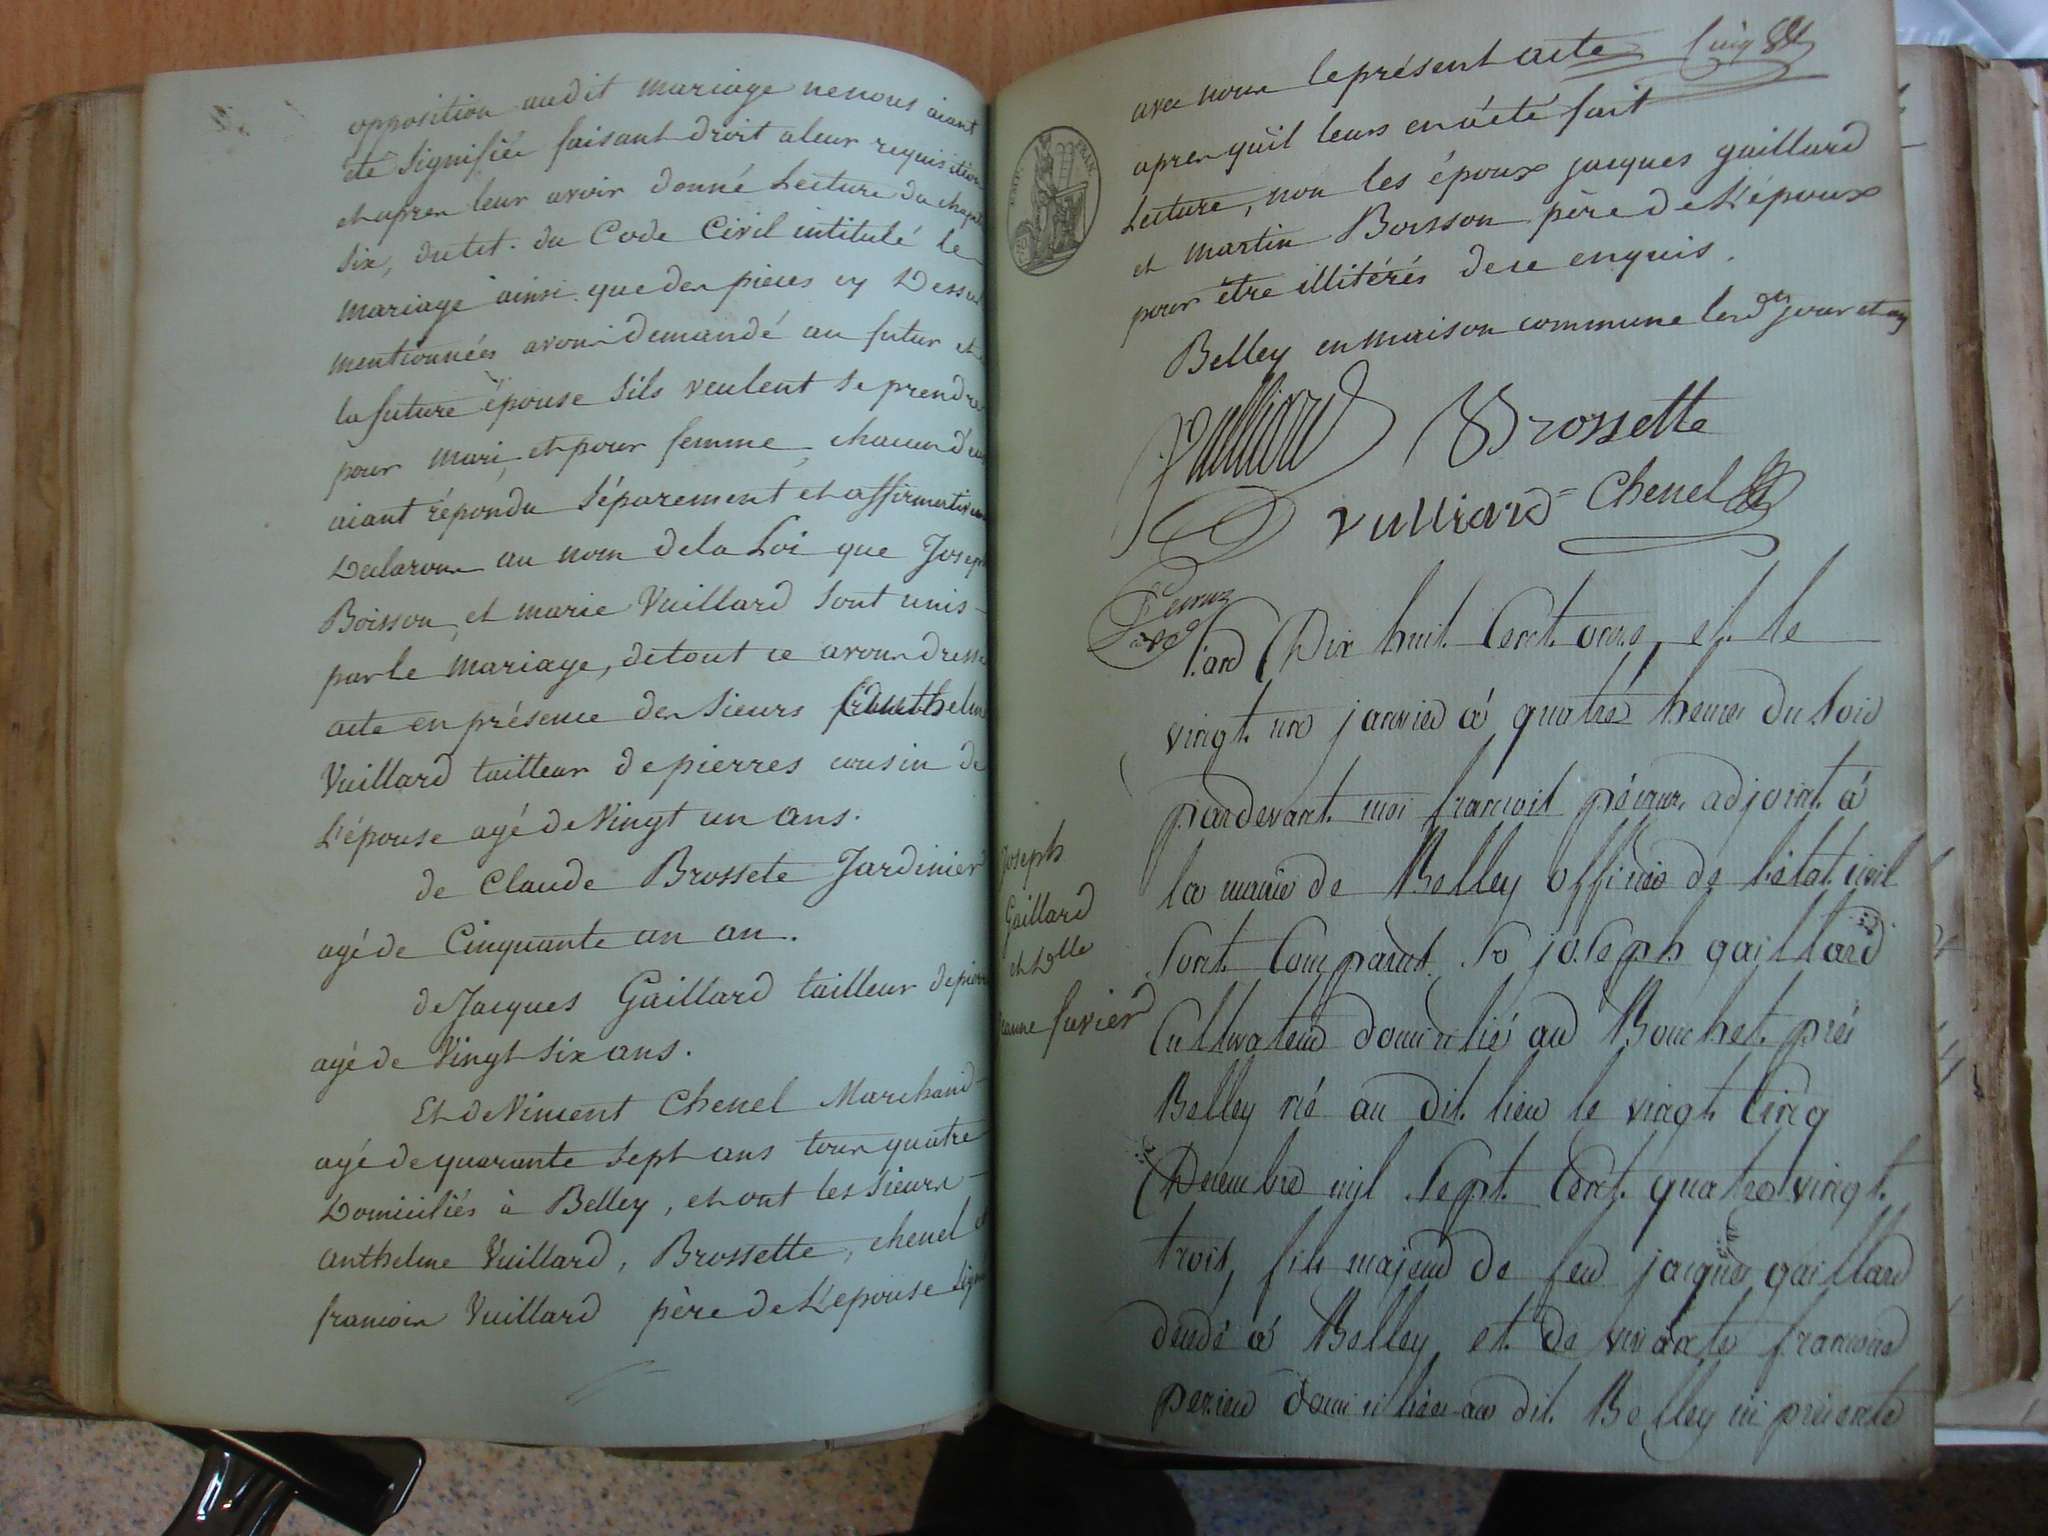 opposition audit mariage ne nous aiant
été signifiée faisant droit a leur requisition
et apres leur avoir donné Lecture du chapt
six, du tit. du Code Civil intitulé le
mariage ainsi que des pieces cy Dessus
mentionnées avons demandé au futur et
la future épouse s'ils veulent se prendre
pour mari, et pour femme, chacun d'eux
aiant répondu séparement et affirmativem
Declarons au nom de la Loi que Joseph
Boisson, et marie Vuillard sont unis
par le mariage, de tout ce avons dressé
acte en présence des sieurs anthelme
Vuillard tailleur de pierres cousin de
L'épouse agé de Vingt un ans.
de Claude Brossete Jardinier
agé de Cinquante un an.
de Jacques Gaillard tailleur de pierre
agé de Vingt six ans.
Et de Vincent Chenel Marchand
agé de quarante sept ans tous quatre
Domiciliés à Belley, et ont les sieurs
anthelme Vuillard, Brossette, chenel et
francois Vuillard père de L'epouse signé
avec nous le présent acte
apres qu'il leurs en a été fait
Lecture, non les époux jacques gaillard
et martin Boisson père de L'époux
pour être illitérés de ce enquis.
Belley en maison commune les dts jour et an
Vuilliard Brossette
Vulliard Chenel
Perrux
adj
L'an Dix huit Cent onze, et le
vingt un janvier à quatre heures du soir
pardevant moi francois adjoint à
la mairie de Belley officier de l'état civil
sont Comparut So joseph gaillard
Joseph
Gaillard
et Dlle
jeanne fuvier
Cultivateur domicilié au Bouchet près
Belley né au dit lieu le vingt Cinq
Decembre mil sept Cent quatre vingt
trois, fils majeur de feu jacques gaillard
décédé à Belley et de vivante francoise
perier domiciliée au dit Belley ici présente